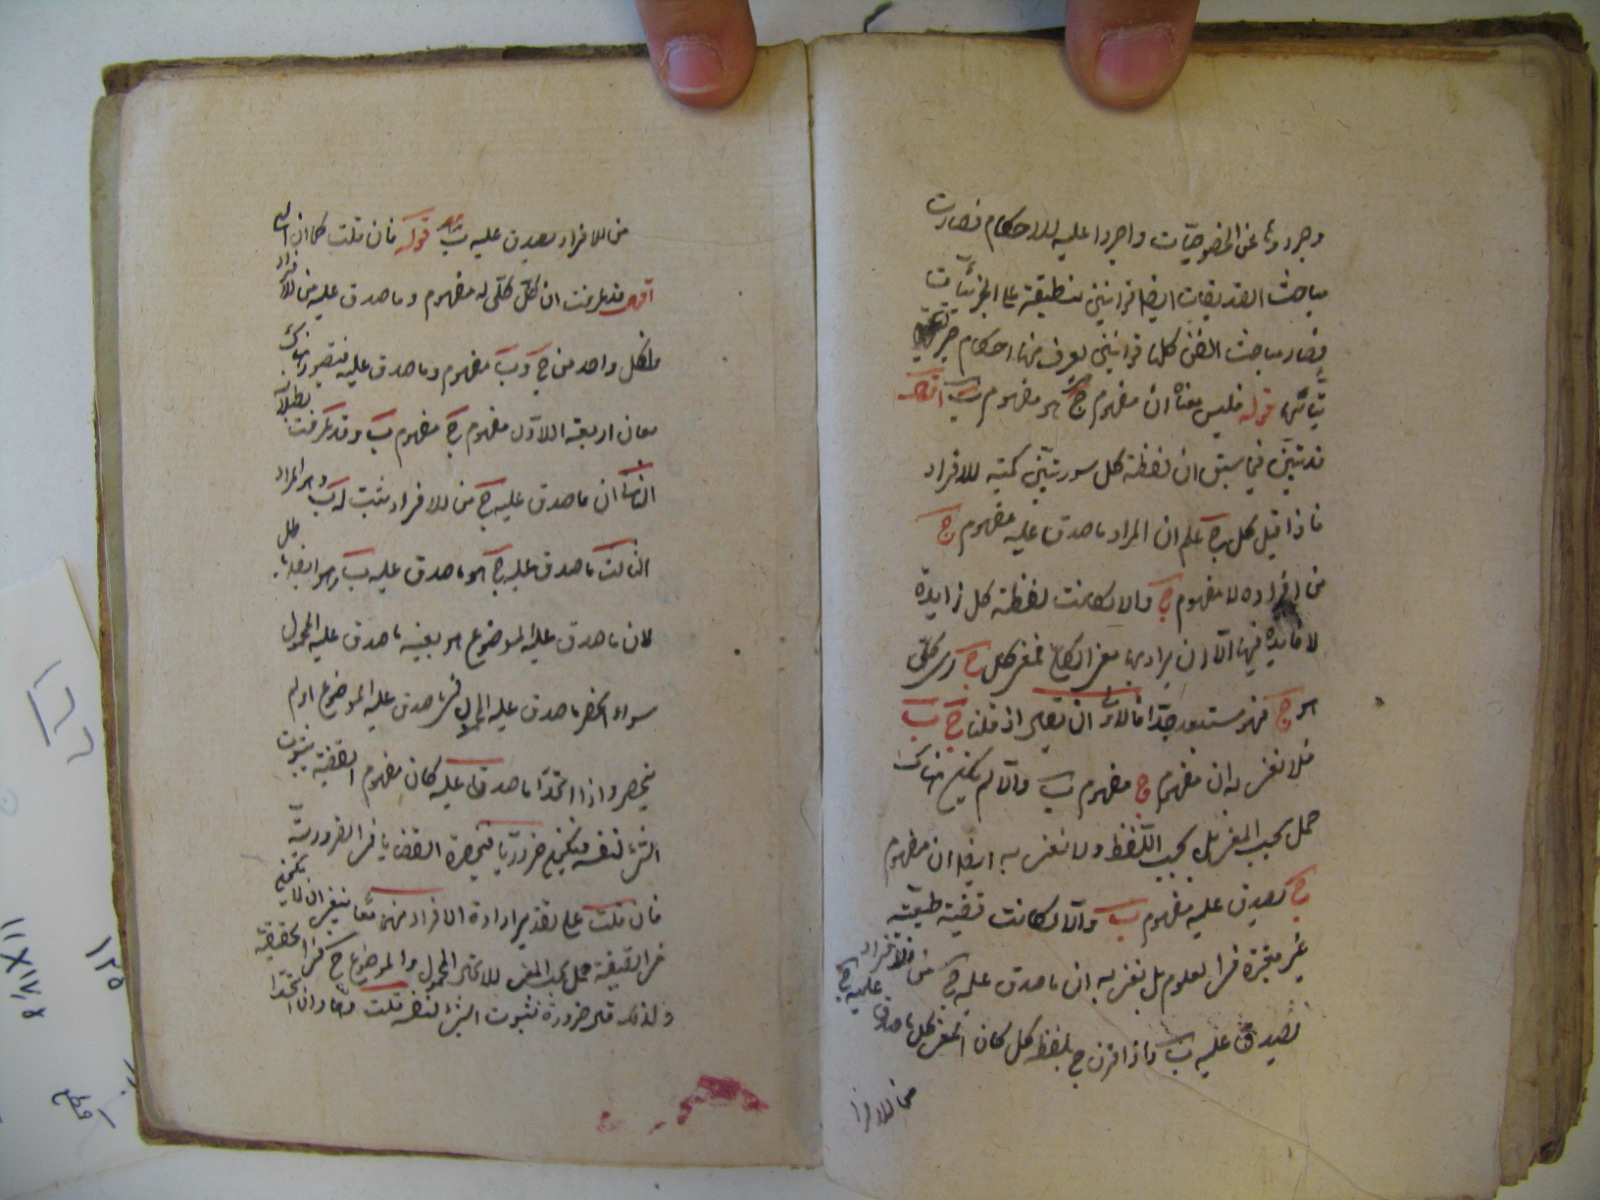 وجردوها عن الخصوصيات واجروا عليه الاحكام فصارت
مباحث التصديقات ايضا قوانين منطبقة على الجزئيات
فصار مباحث الفن كلها قوانين يعرف منها احكام جزئياتها
قوله فليس معناه ان مفهوم ج هو مفهوم ب اقول
قد تبين فيما سبق ان لفظة كل سور تبين كمية الافراد
فاذا قيل كل ج علم ان المراد ما صدق عليه مفهوم ج
من افراده لا مفهوم ج والا لكانت لفظة كل زايدة
لا فايدة فيها الا ان يراد بها معنى الكلي فمعنى كل ج اى كلي
هو ج فهو مستبعد جدا فالاولى ان يقال اذ قلنا ج ب
فلا نعني به ان مفهوم ج مفهوم ب والا لم يكن هناك
حمل بحسب المعنى بل بحسب اللفظ ولا نعني به ايضا ان مفهوم
ج يصدق عليه مفهوم ب والا لكانت قضية طبيعية
غير معتبرة في العلوم بل نعني به ان ما صدق عليه ج من الافراد
يصدق عليه ب واذا قرن ج بلفظة كل كان المعنى كل ما صدق عليه ج
من الافرا
من الافراد يصدق عليه ب قوله فان قلت كما ان
اقول قد عرفت ان كل كلي له مفهوم وما صدق عليه من الافراد
فلكل واحد من ج و ب مفهوم وما صدق عليه فيتصور هناك
معان اربعة الاول مفهوم ج مفهوم ب وقد عرفت بطلانه
الثاني ان ما صدق عليه ج من الافراد يثبت له ب وهو المراد
الثالث ما صدق عليه ج هو ما صدق عليه ب وهو ايضا باطل
لان ما صدق عليه الموضوع هو بعينه ما صدق عليه المحمول
سواء انحصر ما صدق عليه المحمول فيما صدق عليه الموضوع او لم
ينحصر واذا اتحدا ما صدقا عليه كان مفهوم القضية ثبوت
الشئ لنفسه فيكون ضروريا فينحصر القضايا في الضرورية
فان قلت على تقدير ارادة الافراد منهما معا ينبغي ان لا يكون
في القضية حمل بحسب المعنى لاتحاد المحمول والموضوع ح في الحقيقة
ولذلك قيل ضرورة ثبوت الشئ لنفسه قلت هما وان اتحدا